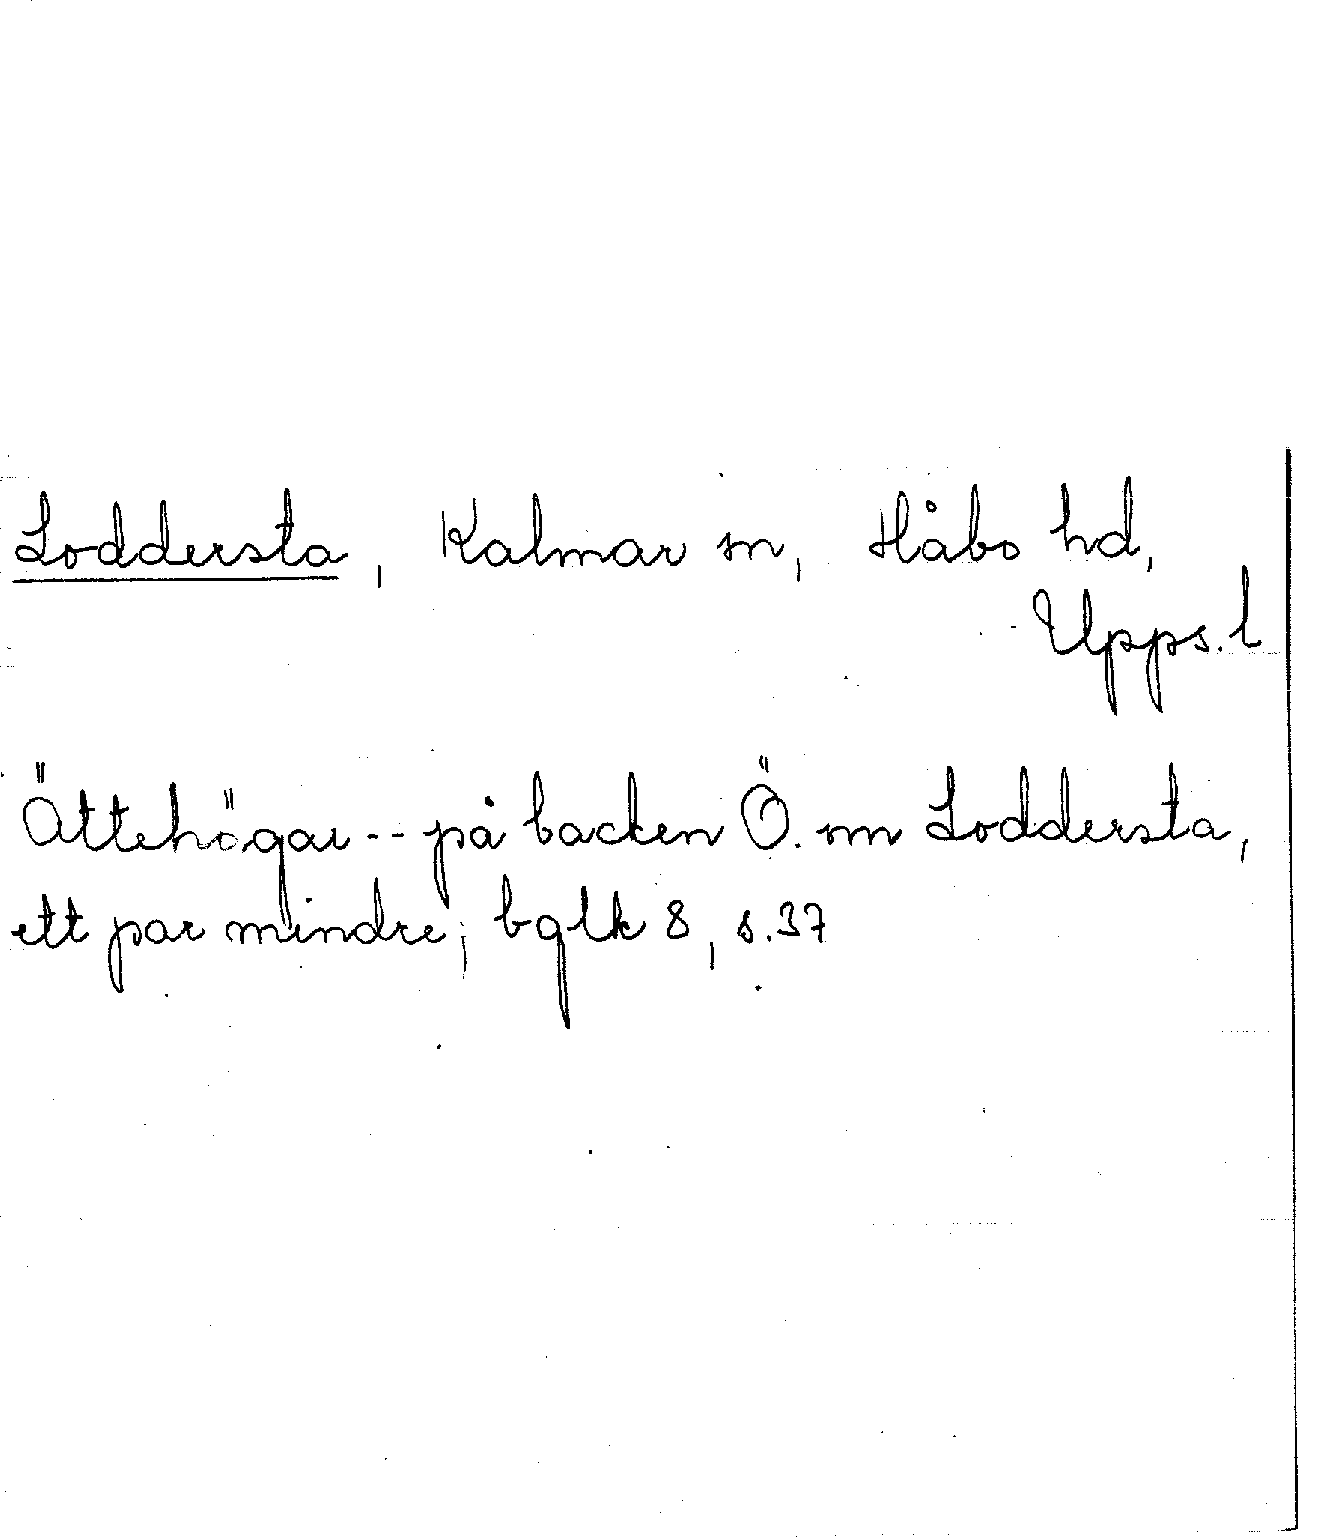 Loddersta, Kalmar sn, Håbo hd,
Upps. l
Ättehögar -- på backen Ö. om Loddersta,
ett par mindre; bglk 8, s. 37